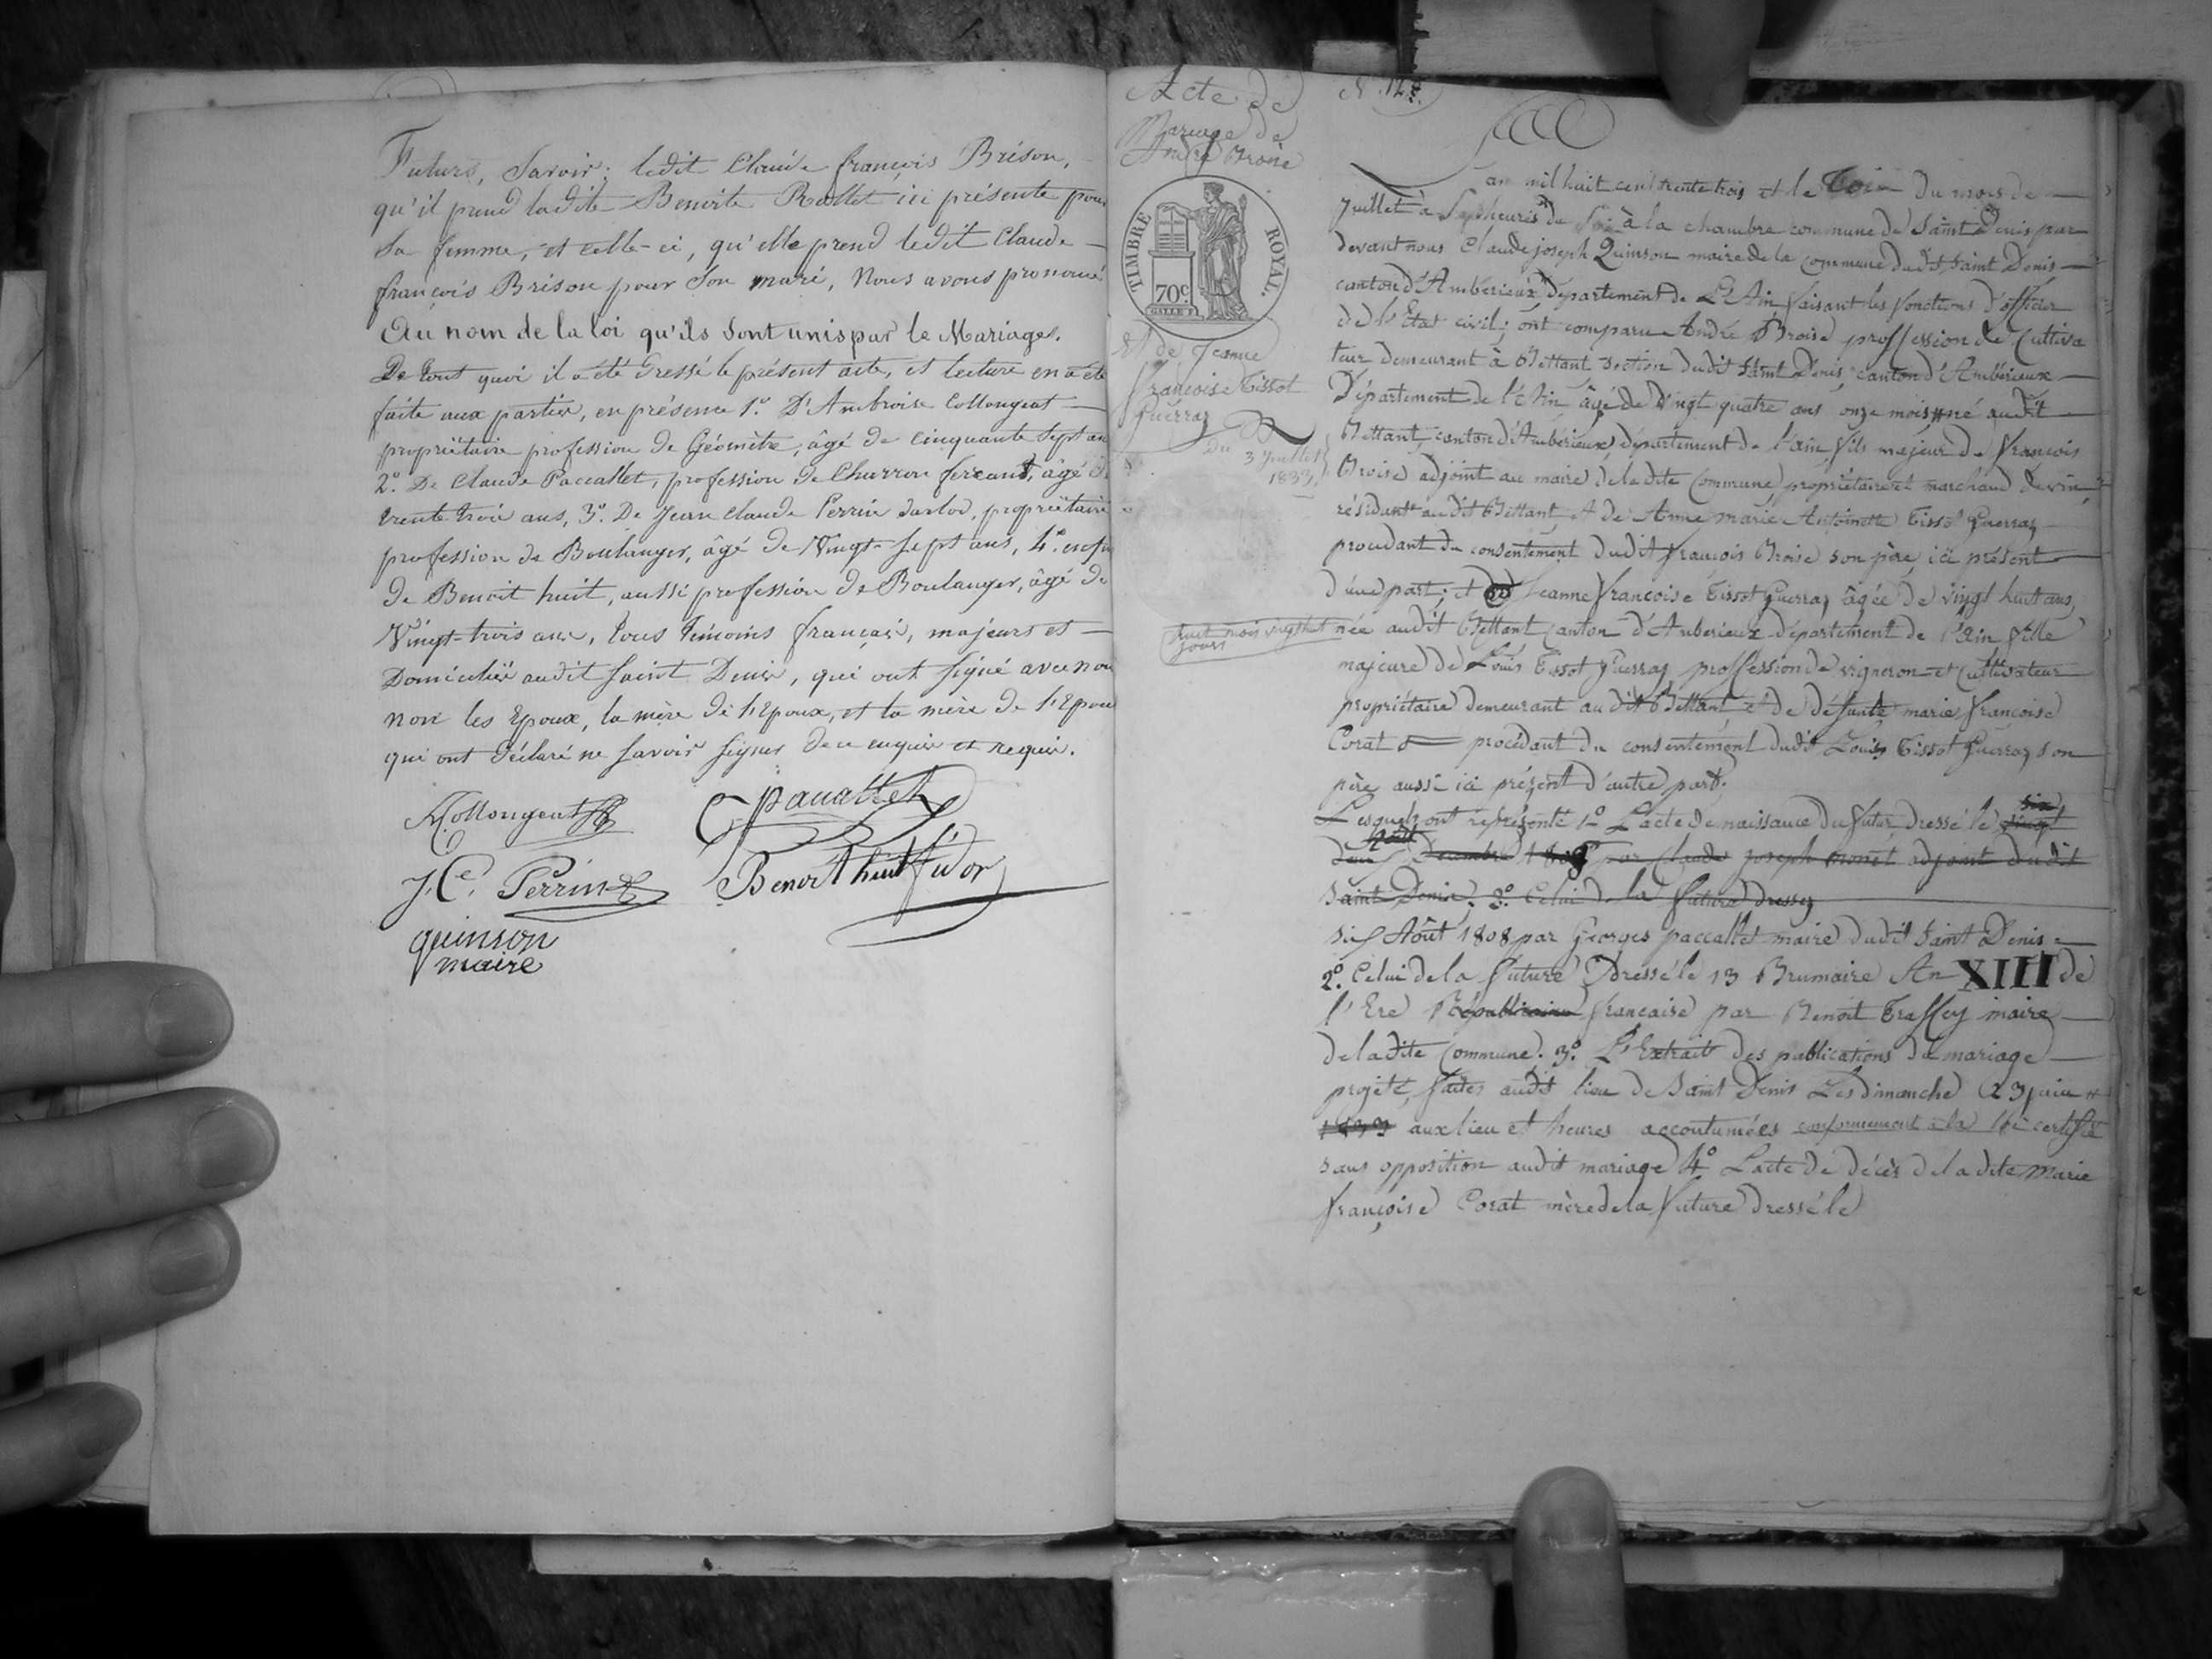 Futurs, Savoir: ledit Claude françois Brison,
qu'il prend ladite Benoite Rallet ici présente pour
Sa femme, et celle-ci, qu'elle prend ledit Claude —
françois Brison pour Son mari, Nous avons prononcé
Au nom de la loi qu'ils sont unis par le Mariage.
De tout quoi il a été Dressé le présent acte, et lecture en a été
faite aux parties, en présence 1º. D'Ambroise Collongeat —
propriétaire profession de Géomètre, âgé de cinquante Sept ans
2º. De Claude Paccallet, profession de Charron ferant, âgé de
trente trois ans, 3º. De Jean Claude Perrin propriétaire
profession de Boulanger, âgé de Vingt-Sept ans, 4º. enfin
de Benoit huit, aussi profession de Boulanger, âgé de
Vingt-trois ans, tous témoins français, majeurs et —
Domiciliés audit Saint Denis, qui ont Signé avec nous
non les Epoux, la mère de l'Epoux, et la mère de l'Epouse
qui ont déclaré ne Savoir Signer de ce enquis et requis.
Collongeat
Paccallet
J. Ce. Perrin
Benoit huit
quinson
maire
Acte de
Mariage de
André Broise
TIMBRE ROYAL.
70c
Et de Jeanne
françoise Tissot
Guerraz
Du
3 Juillet
1833
huit mois vingt
jours
N. 12
L'an mil huit cent trente trois et le trois du mois de —
Juillet à Sept heures du Soir à la chambre commune de Saint Denis par
devant nous Claude joseph Quinson maire de la commune dudit Saint Denis —
canton d'Amberieux, département de L'Ain faisant les fonctions d'officier
de l'Etat civil; ont comparu André Broise proffession de Cultiva
teur demeurant à Bettant section dudit Saint Denis canton d'Ambérieux —
Département de l'Ain âgé de vingt quatre ans onze mois né audit
Bettant, canton d'Ambérieux département de l'ain fils majeur de françois
Broise adjoint au maire de ladite Commune, propriétaire et marchand de vin,
résidant audit Bettant et de Anne marie Antoinette Tissot Guerraz
procédant du consentement dudit françois Broise son père ici présent
d'une part; et Jeanne françoise Tissot Guerraz âgée de vingt huit ans,
née audit Bettant Canton d'Amberieux département de l'Ain fille
majeure de Louis Tissot Guerraz proffession de vigneron et Cultivateur
propriétaire demeurant au dit Bettant et de défunte marie françoise
Corat procédant du consentement dudit Louis Tissot Guerraz son
père aussi ici présent d'autre part.
Lesquels ont représenté 1º L'acte de naissance du futur, dressé le
Décembre par Claude joseph monet adjoint dudit
Saint Denis; 2º. Celui de la future dressé
six Août 1808 par Georges paccallet maire dudit Saint Denis —
2º. Celui de la future Dressé le 13 Brumaire An XIII de
l'Ere Républicaine française par Benoit Traffey maire —
de la dite Commune. 3º. L'Extrait des publications du mariage —
projeté, faites audit lieu de Saint Denis Les dimanche 23 juin
1833 aux lieu et heures accoutumées conformement à la loi certifié
sans opposition audit mariage 4º L'acte de décès de la dite Marie
françoise Corat mère de la future dressé le